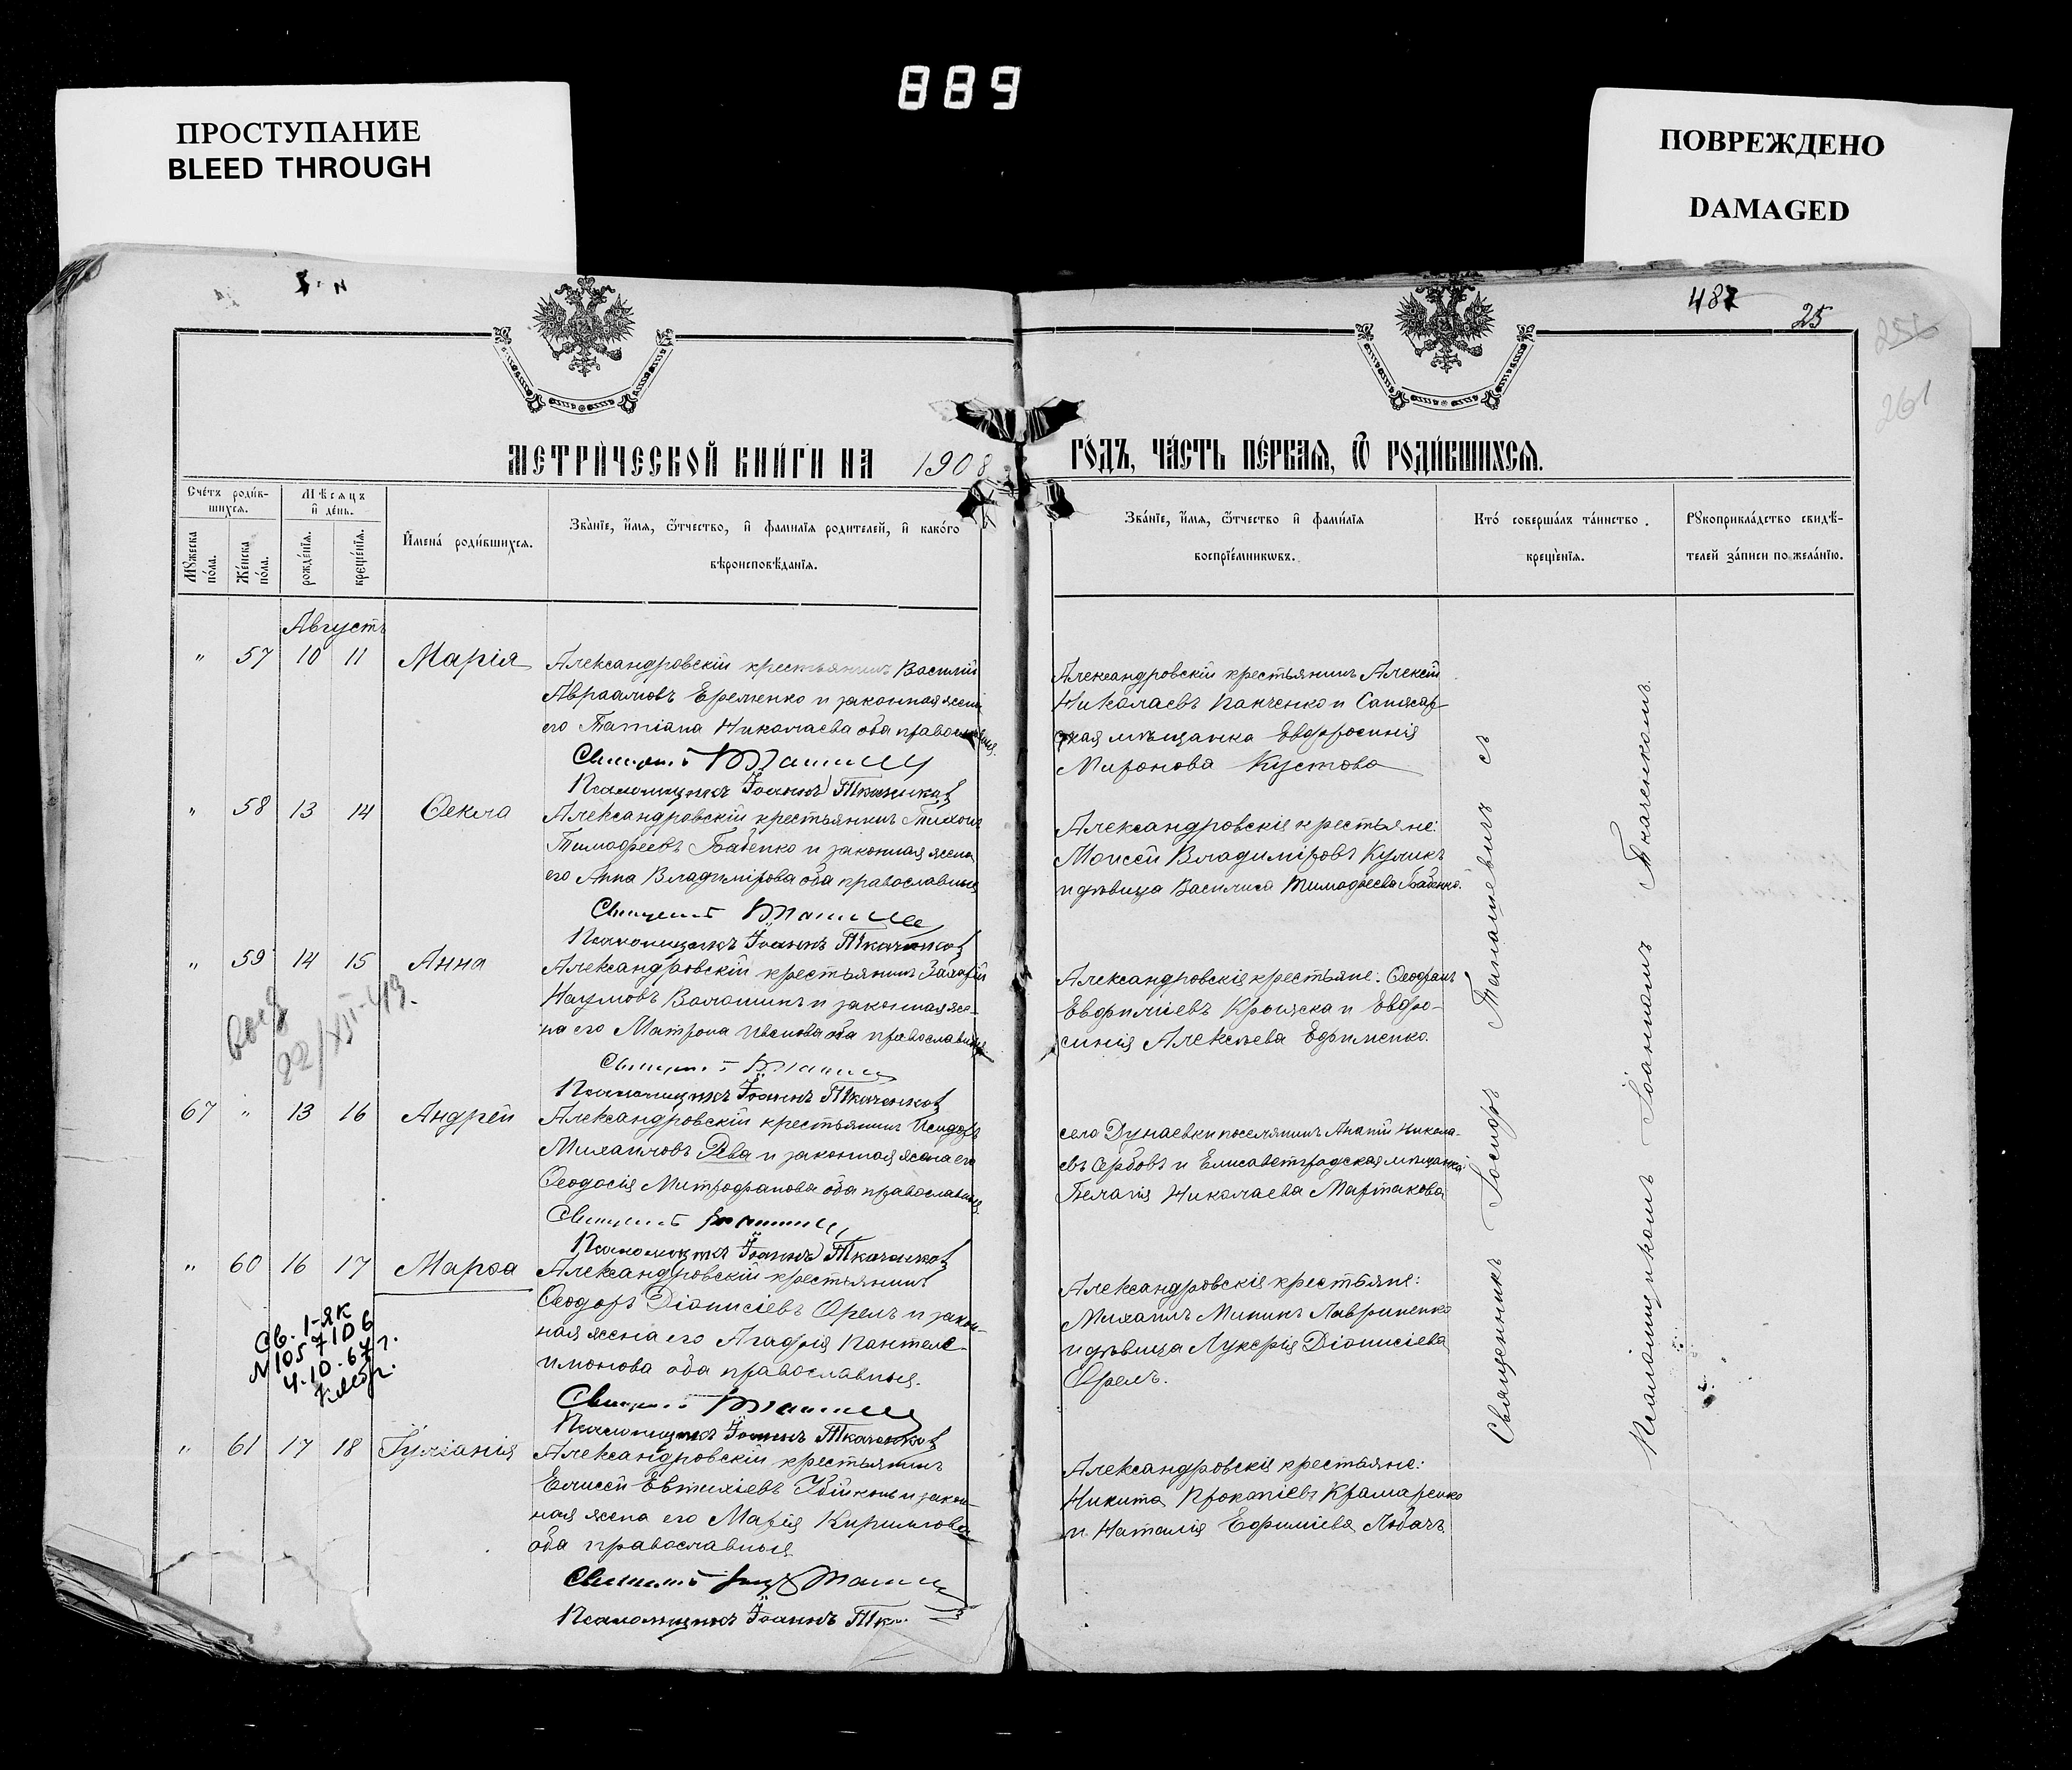 889
ПРОСТУПАНИЕ
BLEED THROUGH
ПОВРЕЖДЕНО
DAMAGED
487
25
261
МЕТРИЧЕСКОЙ КНИГИ НА 1908
ГОДЪ, ЧАСТЬ ПЕРВАЯ, Ѿ РОДИВШИХСЯ.
Счетъ родив-
шихся.
Мѣсяцъ
и день.
Мужеска пола.
Женска пола.
рожденія.
крещенія.
Имена родившихся.
Званіе, имя, ѿтчество, и фамилія родителей, и какого
вѣроисповѣданія.
Званіе, имя, ѿтчество и фамилія
воспріемниковъ.
Кто совершалъ таинство
крещенія.
Рукоприкладство свидѣ-
телей записи по желанію.
Августъ
" 57 10 11 Марія
Александровскій крестьянинъ Василій
Авраамовъ Еременко и законная жена
его Татіана Николаева оба православные.
Псаломщикъ Іоаннъ Ткаченковъ
Александровскій крестьянинъ Алексій
Николаевъ Панченко и
мѣщанка Евфросинія
Миронова Кустова
" 58 13 14 Ѳекла
Александровскій крестьянинъ Тихонъ
Тимофеевъ Бабенко и законная жена
его Анна Владимірова оба православные
Псаломщикъ Іоаннъ Ткаченковъ
Александровскіе крестьяне:
Моисей Владиміровъ Куликъ
и дѣвица Василиса Тимофеева Бабенко.
" 59 14 15 Анна
22/XII-43.
Александровскій крестьянинъ Захарій
Наумовъ Волошинъ и законная же-
на его Матрона Иванова оба православные
Псаломщикъ Іоаннъ Ткаченковъ
Александровскіе крестьяне: Ѳеофанъ
Евфиміевъ и Евфро-
синія Алексѣева Ефименко.
67 " 13 16 Андрей
Александровскій крестьянинъ Исидоръ
Михаиловъ Рева и законная жена его
Ѳеодосія Митрофанова оба православные.
Псаломщикъ Іоаннъ Ткаченковъ
села Дунаевки поселянинъ Никола-
евъ Сербовъ и Елисаветградская мѣщанка
Пелагія Николаева Мартакова
" 60 16 17 Марѳа
Св. 1-ЯК
N 1057106
4.10.67г.
Александровскій крестьянинъ
Ѳеодоръ Діонисіевъ Орелъ и закон-
ная жена его Агафія Пантеле-
имонова оба православные.
Псаломщикъ Іоаннъ Ткаченковъ
Александровскіе крестьяне:
Михаилъ Мининъ Лавриненко
и дѣвица Лукерія Діонисіева
Орелъ.
" 61 17 18 Іуліанія
Александровскій крестьянинъ
Елисей Евтихіевъ и закон-
ная жена его Марія Кирилова
оба православные
Псаломщикъ Іоаннъ
Александровскіе крестьяне:
Никита Прокопіевъ Крамаренко
и Наталія Ефиміева Любачъ
Священникъ Іосифъ Танашевичъ съ
Псаломщикомъ Іоанномъ Ткаченкомъ.